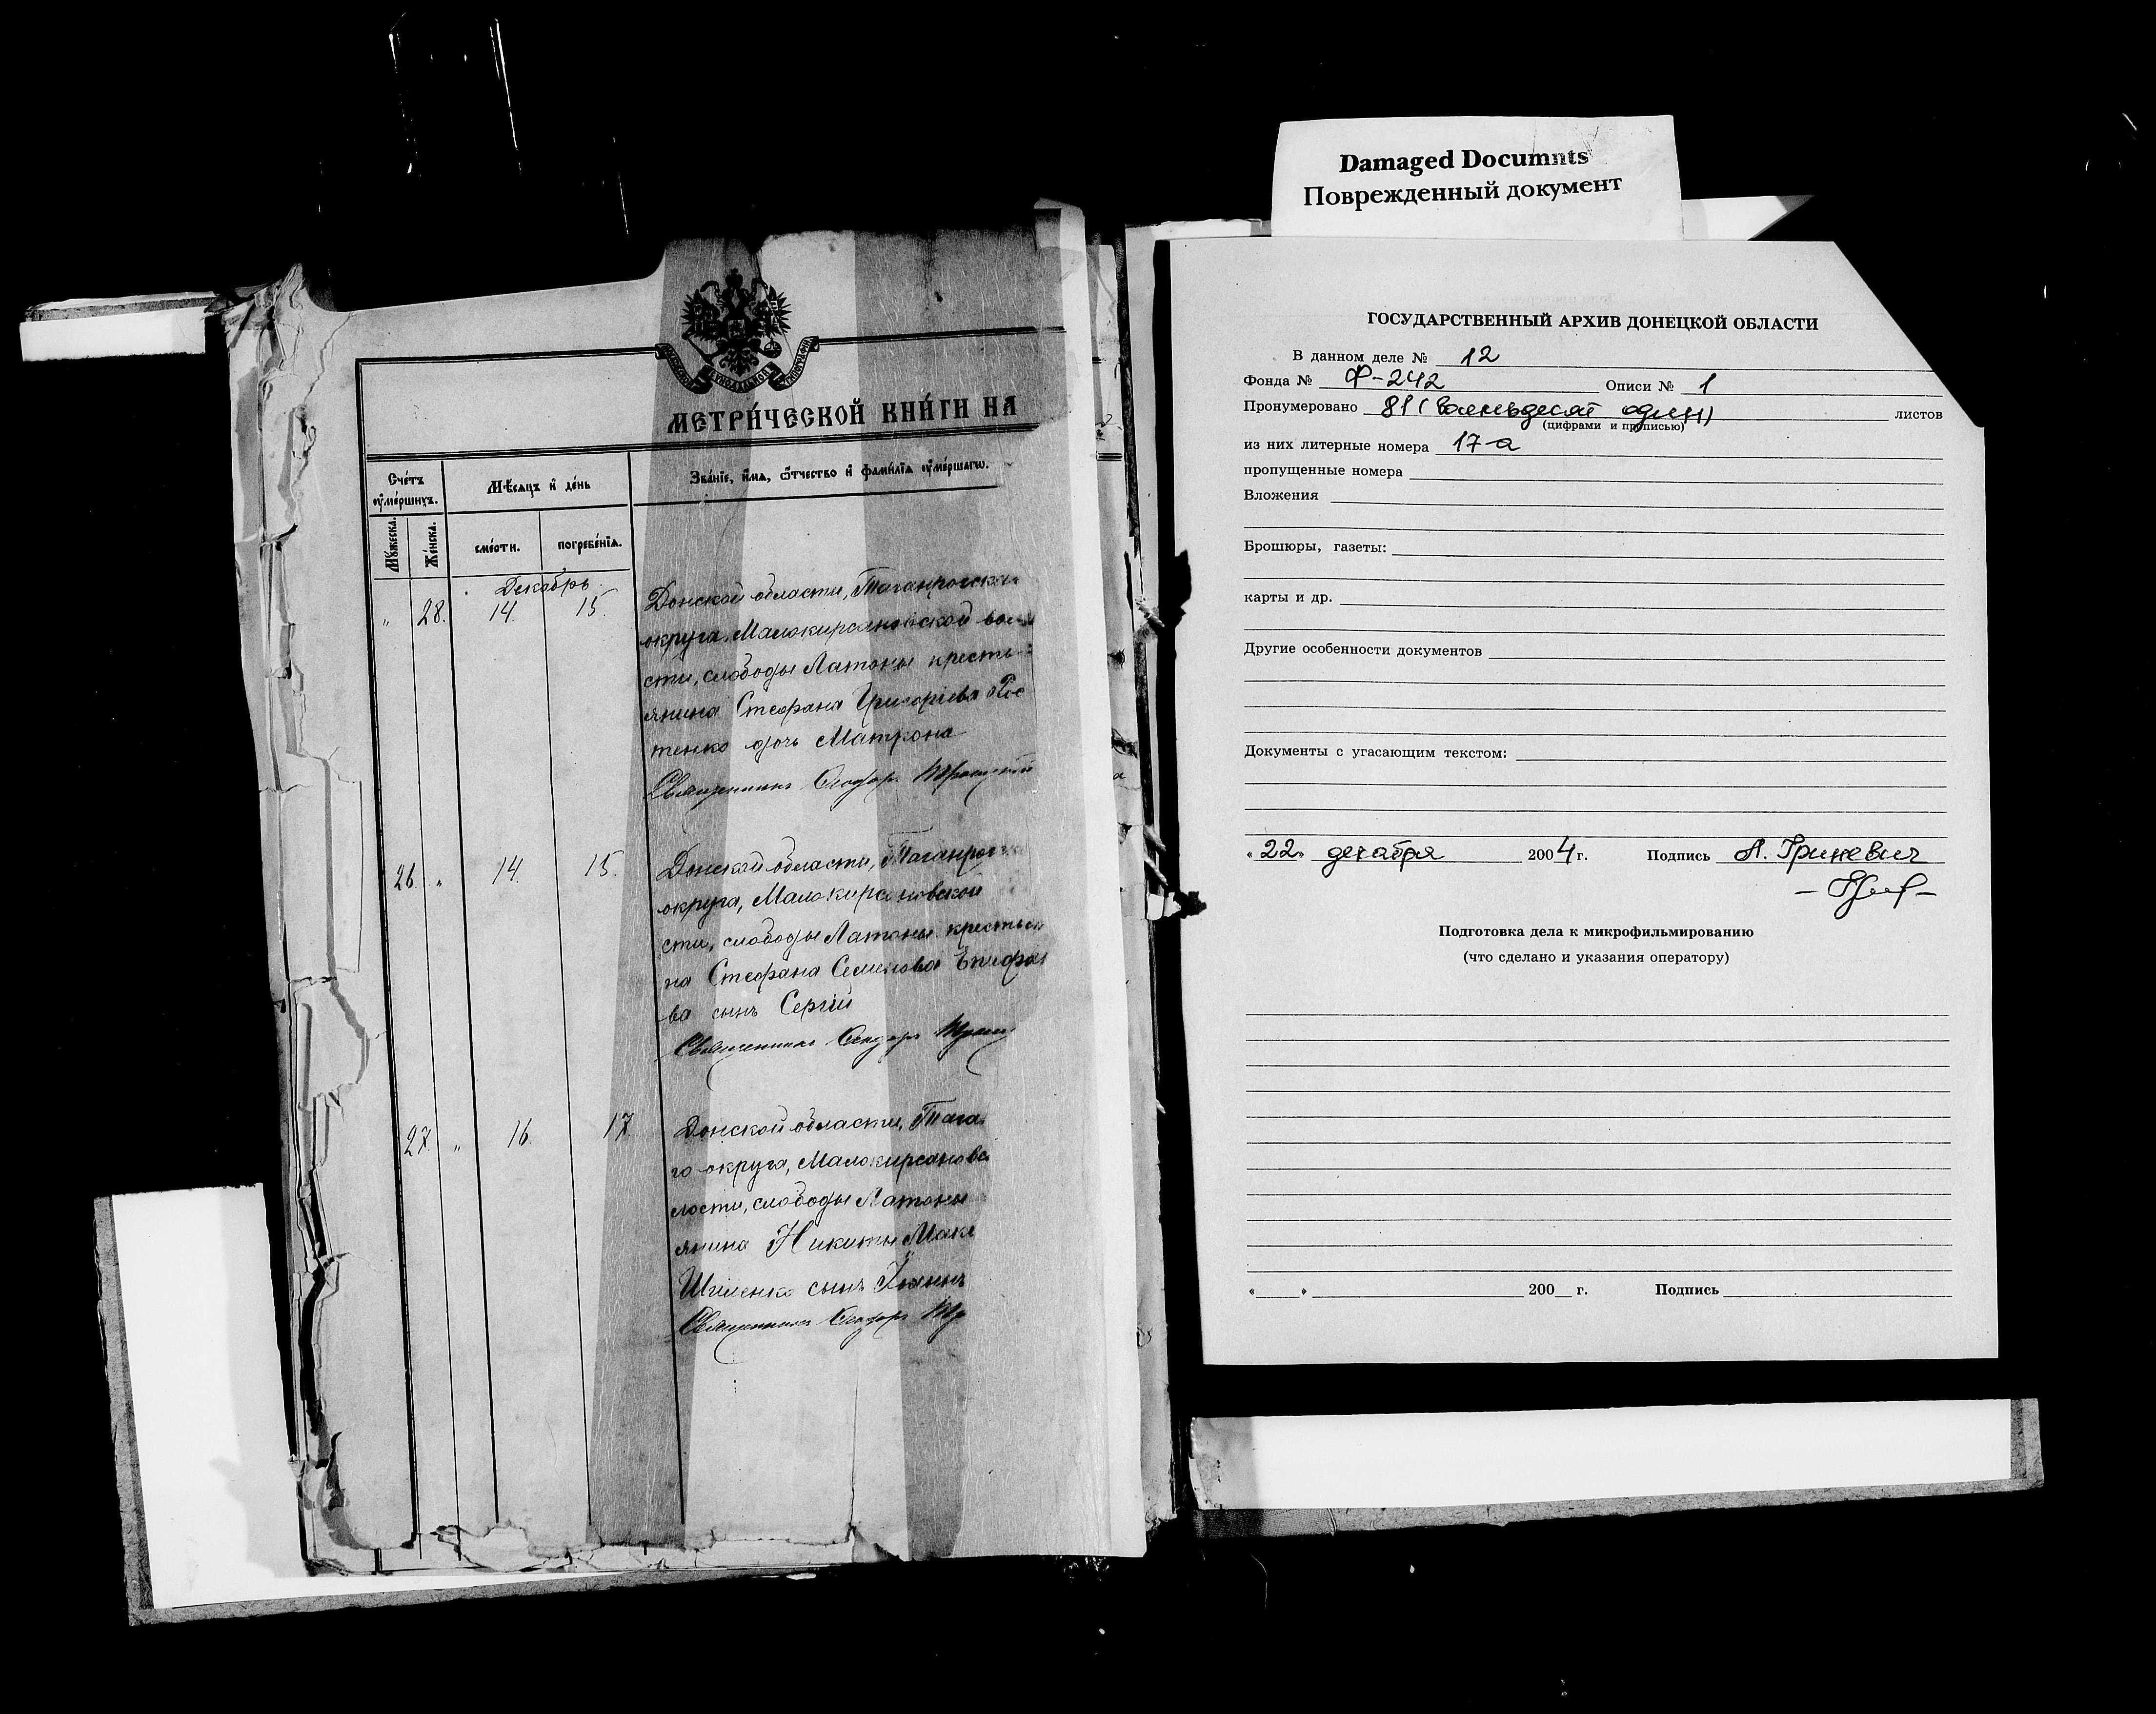 Damaged Documnts
Поврежденный документ
МЕТРИ́ЧЕСКОЙ КНИ́ГИ НА
Сче́тъ ᲂу҆ме́ршихъ.
Мѣ́сяцъ и҆ де́нь
Зва́нїе, и҆́мѧ, ѻ҆́тчество и҆ фами́лїѧ ᲂу҆ме́ршагѡ.
Мꙋ́жеска.
Же́нска.
сме́рти.
погребе́нїѧ.
Декабрь
„ 28. 14. 15. Донской области, Таганрогска
округа, Малокирсановской во
сти, слободы Латоны кресть
янина Стефана Григоріева Рос
тенко дочь Матрона
Священникъ Ѳеодоръ Троицкій
26. „ 14. 15. Донской области, Таганрог
округа, Малокирсановской
сти, слободы Латоны крестья
на Стефана Семенова Епифа
ва сынъ Сергій
Священникъ Ѳеодоръ
27. „ 16. 17. Донской области, Тага
го округа, Малокирсановс
лости, слободы Латоны
янина Никиты Мака
сынъ Іоаннъ
Священникъ Ѳеодоръ Тр
ГОСУДАРСТВЕННЫЙ АРХИВ ДОНЕЦКОЙ ОБЛАСТИ
В данном деле № 12
Фонда № Ф-242 Описи № 1
Пронумеровано 81 (восемьдесят один) листов
(цифрами и прописью)
из них литерные номера 17-а
пропущенные номера
Вложения
Брошюры, газеты:
карты и др.
Другие особенности документов
Документы с угасающим текстом:
«22» декабря 2004 г. Подпись А. Гриневич
Подготовка дела к микрофильмированию
(что сделано и указания оператору)
« » 200 г. Подпись